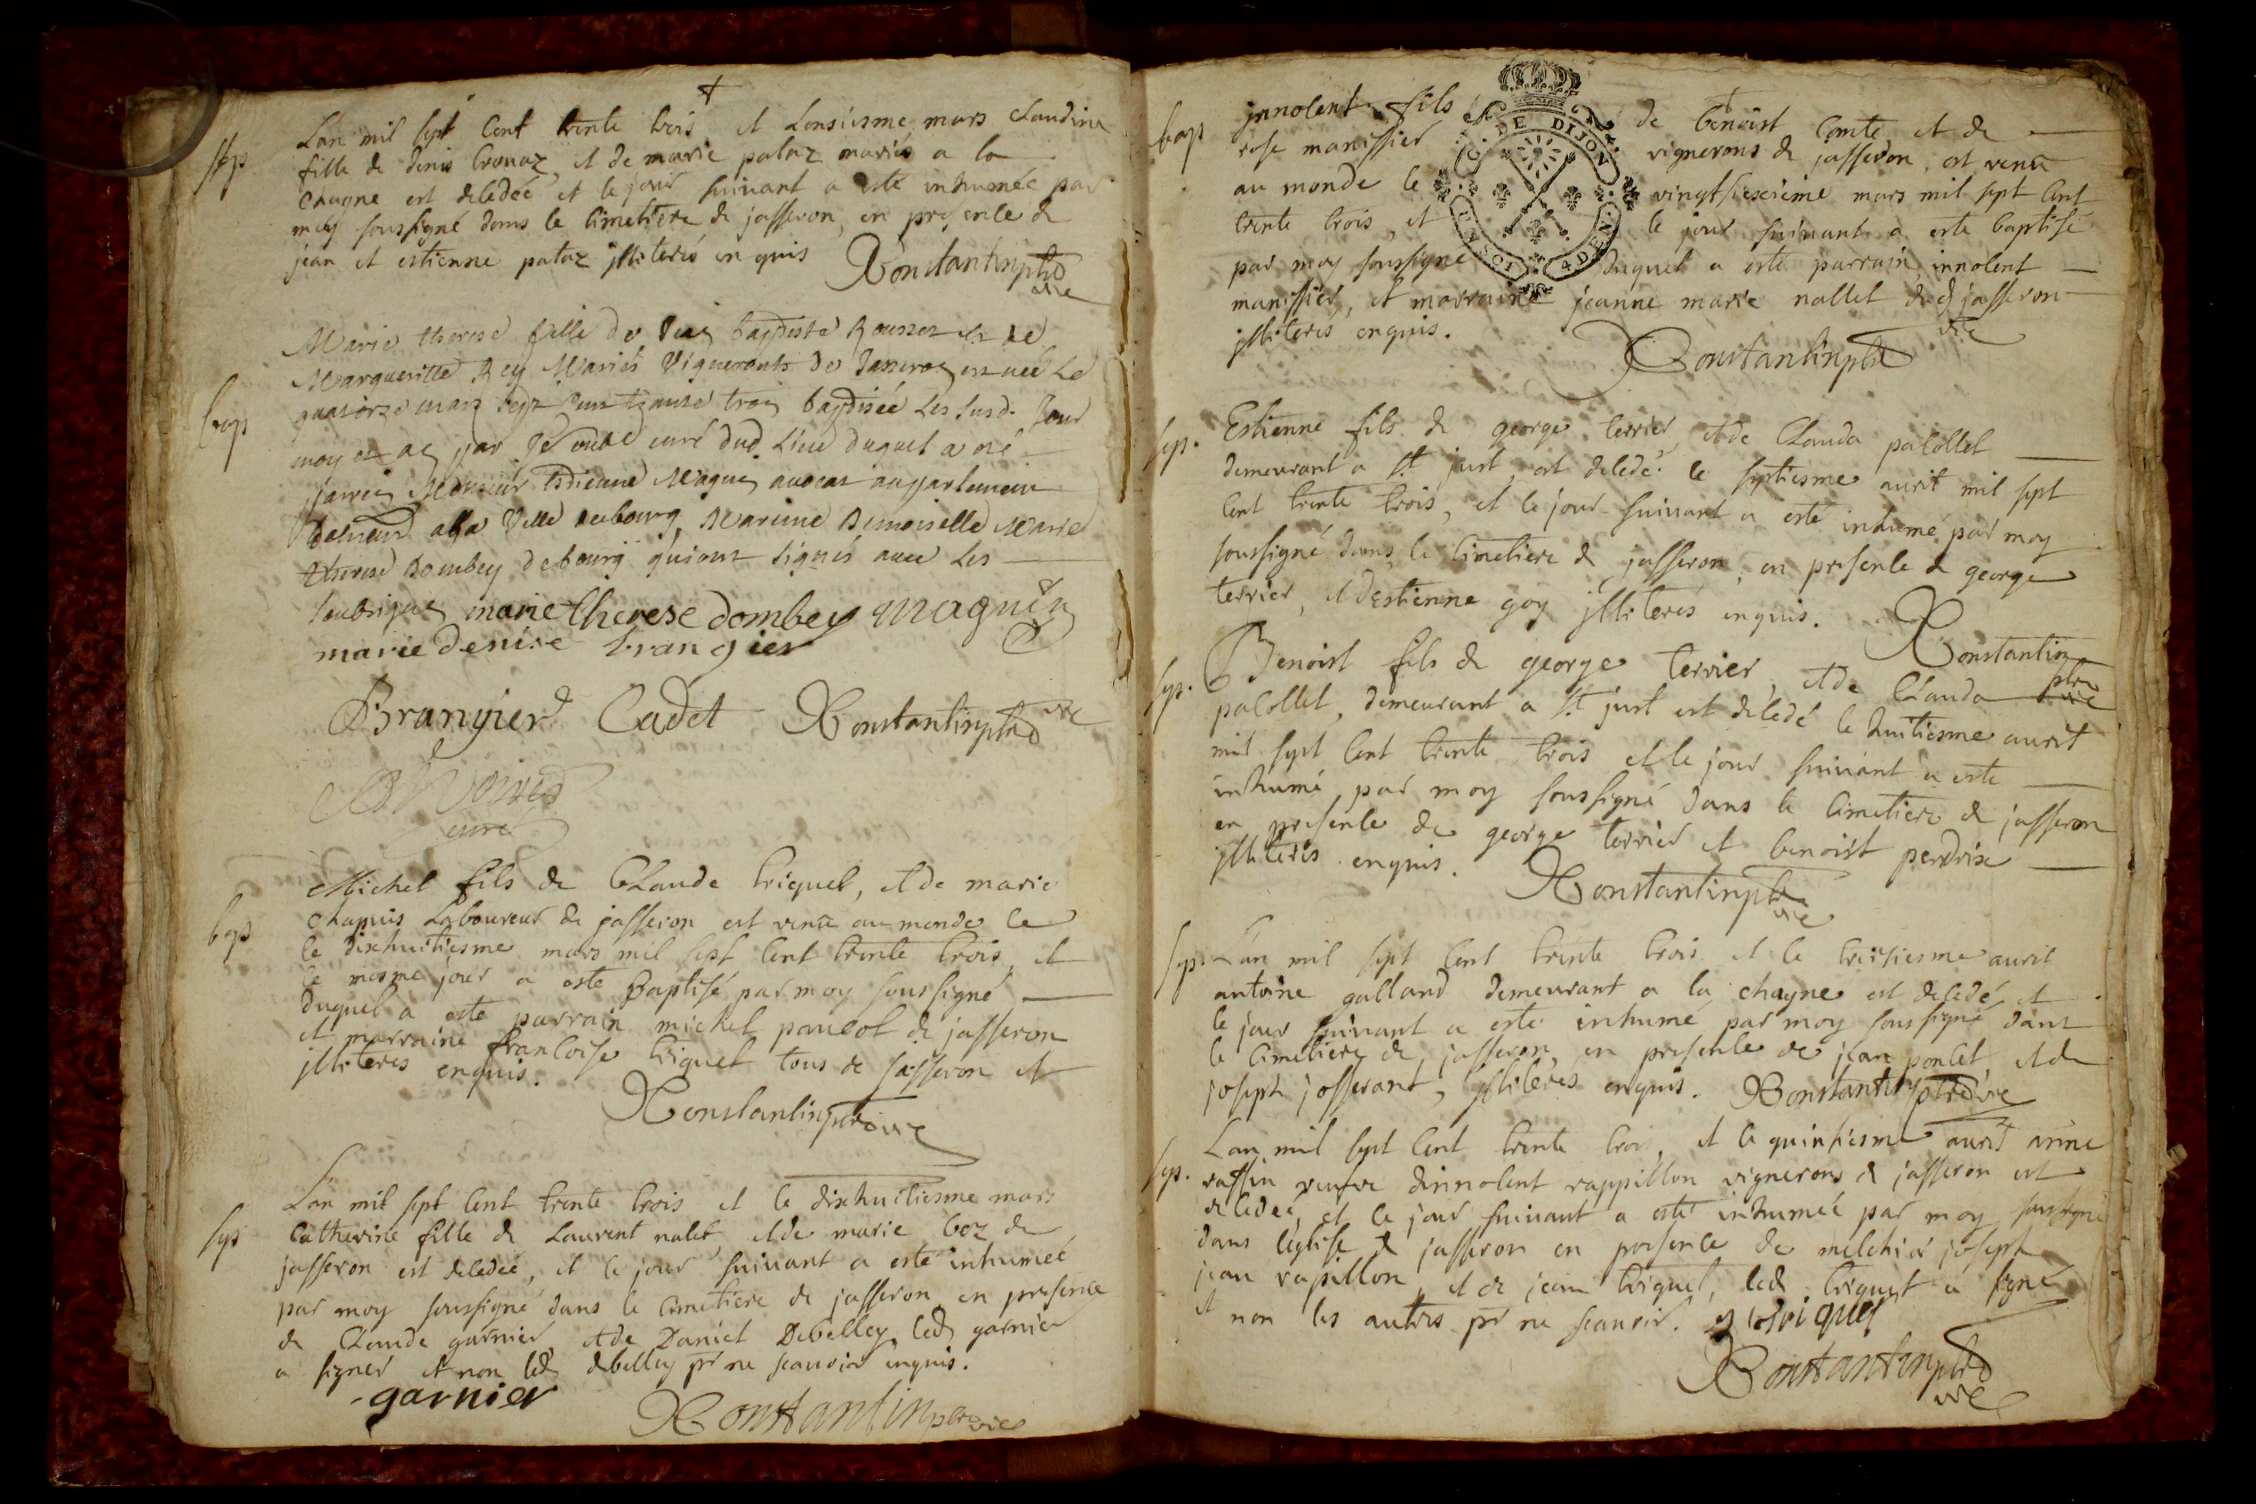 sep
Lan mil sept cent trente trois et lonsiesme mars claudine
fille de denis cronaz, et de marie pataz mariés a la
chagne est decedée et le jour suivant a esté inhumée par
moy soussigné dans le cimetiere de jasseron, en presence de
jean et estienne pataz illiterés enquis Constantin ptre
vic
bap
Marie therese fille de Jean baptiste Rousset et de
Margueritte Rey Mariés Vignerons de Jasseron est née Le
quatorze mars sept cent trante trois baptisée Les susd. Jour
mois et an par Je curé dud Lieu duquel a été
parrain Monsieur Magnin avocat au parlement
a la Ville de bourg Marine Demoiselle Marie
therese Dombey de bourg qui ont signés avec Les
soubsignez marie therese dombey magnin
marie denise brangier
Brangier Cadet Constantin ptre vic
curé
bap
Michel fils de Claude triquet, et de marie
chapuis Laboureur de jasseron est venu au monde le
le dixhuitiesme mars mil sept cent trente trois, et
le mesme jour a esté Baptisé par moy soussigné
duquel a esté parrain michel paucot de jasseron
et marraine francoise triquet tous de jasseron et
illiteres enquis.
Constantin ptre vic
sep
Lan mil sept cent trente trois et le dixhuitiesme mars
Catherine fille de Laurent nalet et de marie boz de
jasseron est decedée, et le jour suivant a esté inhumée
par moy soussigné dans le cimetiere de jasseron en presence
de Claude garnier, et de Daniel Debelley led garnier
a signer et non led debelley pr ne scavoir enquis.
garnier Constantin ptre vic
bap
innocent fils de benoist Comte et de
rose manissier vignerons de jasseron est venu
au monde le vingtsiesieme mars mil sept cent
trente trois, et le jour suivant a esté baptisé
par moy soussigné duquel a esté parrain innocent
manissier, et marraine jeanne marie nallet dud jasseron
illiteres enquis.
Constantin ptre vic
G. DE DIJON
4 DEN.
sep.
Estienne fils de george terrier, et de Clauda pacollet
demeurant a st just est decedé le septiesme avril mil sept
cent trente trois, et le jour suivant a esté inhumé par moy
soussigné dans le cimetiere de jasseron, en presence de george
terrier, et destienne goy illiterés enquis.
Constantin ptre vic
sep.
Benoist fils de george terrier, et de Clauda
pacollet, demeurant a st just est decedé le huitiesme avril
mil sept cent trente trois et le jour suivant a esté
inhumé par moy soussigné dans le cimetiere de jasseron
en presence de george terrier et benoist perdrix
illiterés enquis.
Constantin ptre vic
sep.
Lan mil sept cent trente trois et le treisiesme avril
antoine galland demeurant a la chagne est decedé, et
le jour suivant a esté inhumé par moy soussigné dans
le cimetiere de jasseron, en presence de jean poncet et de
joseph josserant, illiterés enquis. Constantin ptre vic
sep.
Lan mil sept cent trente trois, et le quinsiesme avril anne
raffin veufve dinnocent rappillon vignerons de jasseron est
decedée et le jour suivant a esté inhumée par moy soussigné
dans leglise de jasseron en presence de melchior joseph
jean rapillon, et de jean triquet, led triquet a signé
et non les autres pr ne scavoir. j triquet
Constantin ptre
vic